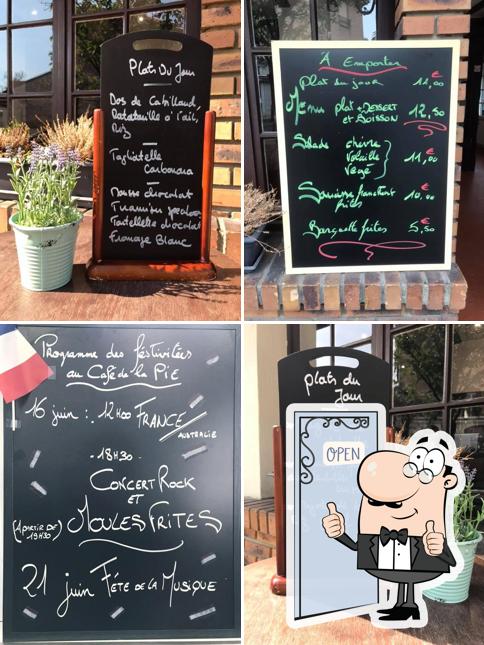 Plats Du Jour
Dos de Cabillaud,
Ratatouille à l'ail,
Riz
Tagliatelle
Carbonara
Mousse chocolat
Tiramisu speculoos
Tartellette chocolat
Fromage Blanc
À Emporter
Plat du jour 11,00 €
Menu plat + DESSERT
et BOISSON 12,50
Salade chèvre
Volaille 11,00 €
Végé
frites 10,00 €
Barquette frites 5,50 €
Programme des festivitées
au Café de la Pie
16 juin : 12h00 FRANCE /
AUSTRALIE
- 18H30 -
CONCERT ROCK
ET
(A PARTIR DE 19H30) MOULES FRITES
21 juin Fête de la Musique
plats du
Jour
OPEN